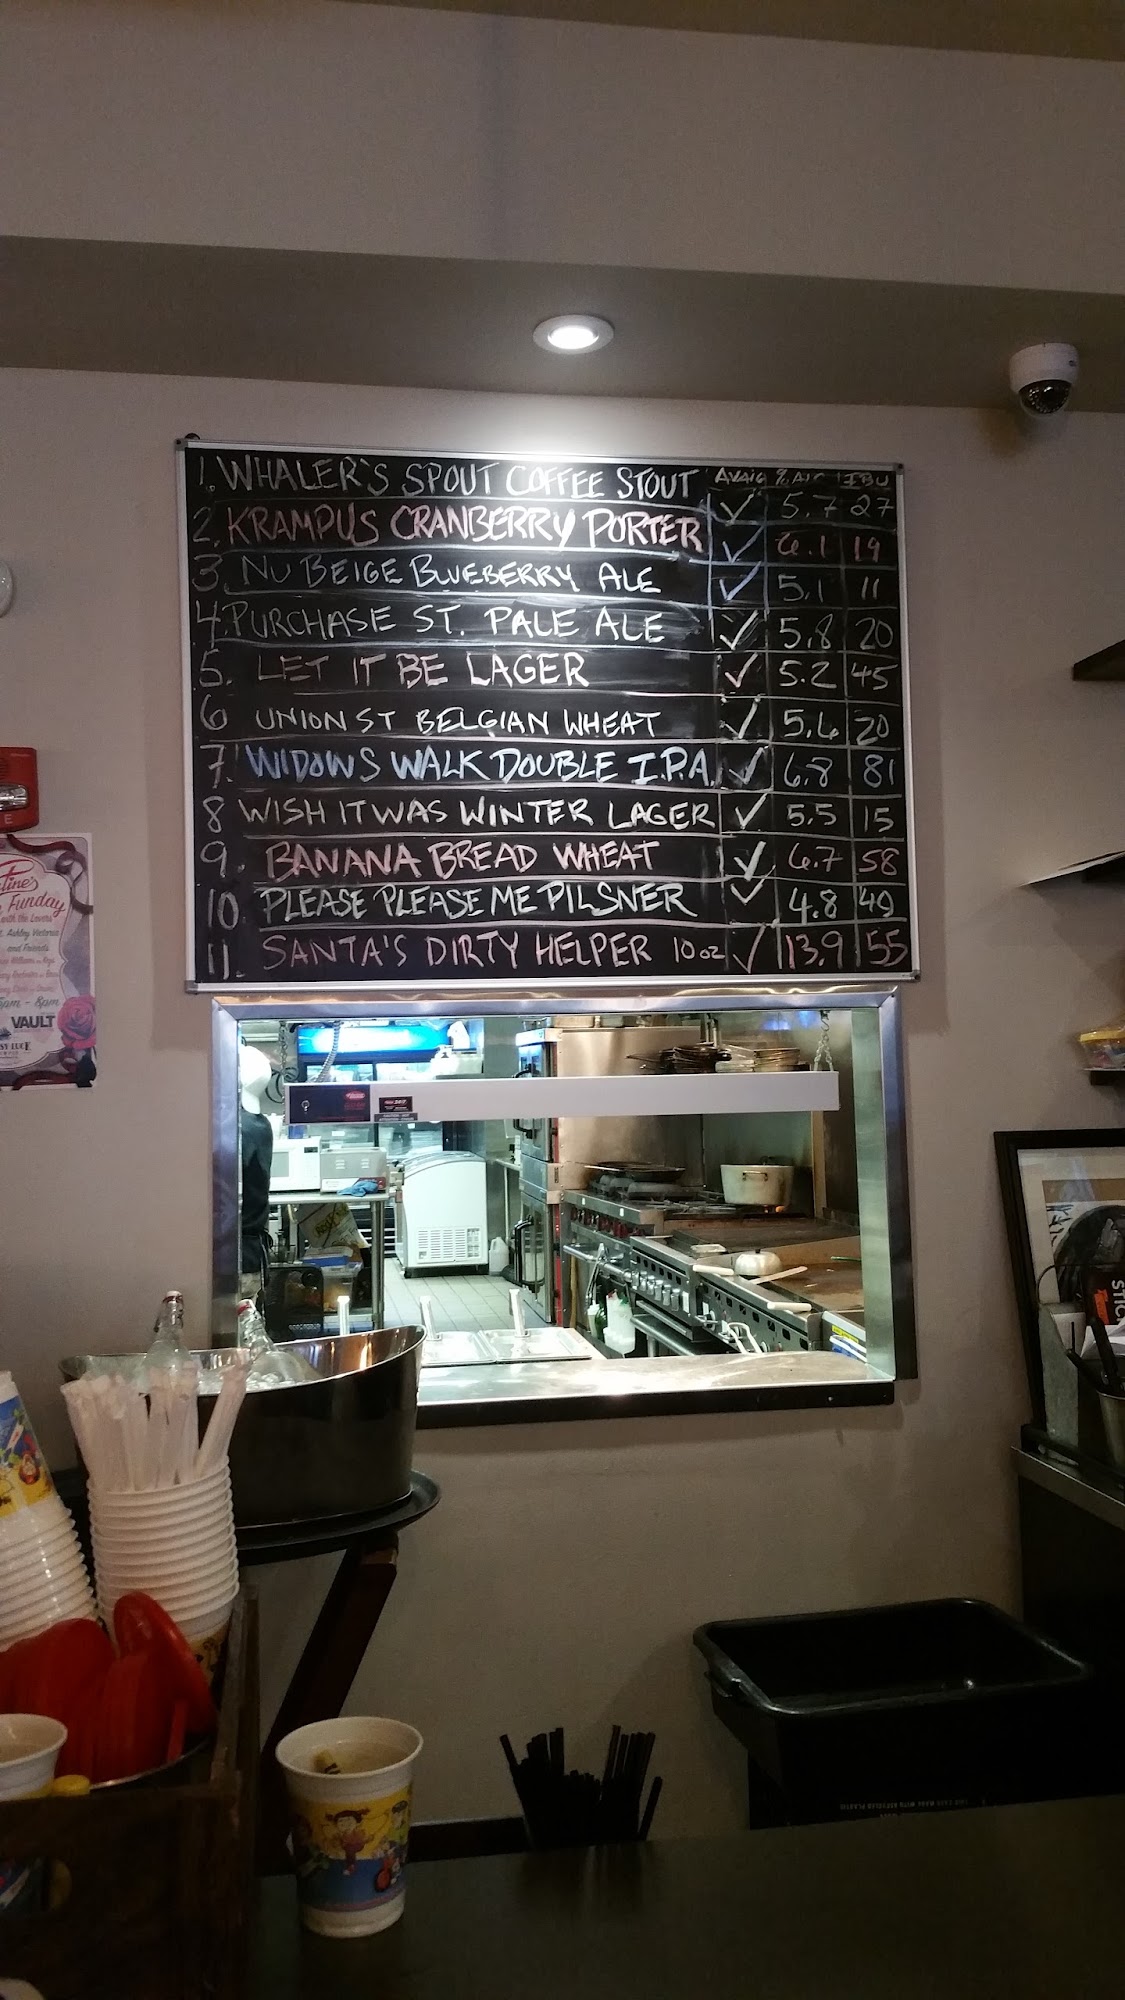 1. WHALER'S SPOUT COFFEE STOUT AVAIL % ALC IBU
✓ 5.7 27
2. KRAMPUS CRANBERRY PORTER ✓ 6.1 19
3. NU BEIGE BLUEBERRY ALE ✓ 5.1 11
4. PURCHASE ST. PALE ALE ✓ 5.8 20
5. LET IT BE LAGER ✓ 5.2 45
6 UNION ST BELGIAN WHEAT ✓ 5.6 20
7. WIDOWS WALK DOUBLE I.P.A. ✓ 6.8 81
8 WISH IT WAS WINTER LAGER ✓ 5.5 15
9. BANANA BREAD WHEAT ✓ 6.7 58
10 PLEASE PLEASE ME PILSNER ✓ 4.8 49
11. SANTA'S DIRTY HELPER 10 oz ✓ 13.9 55
Funday
with the Lovers
Ashley Victoria
and Friends
5pm - 8pm
VAULT
STIC